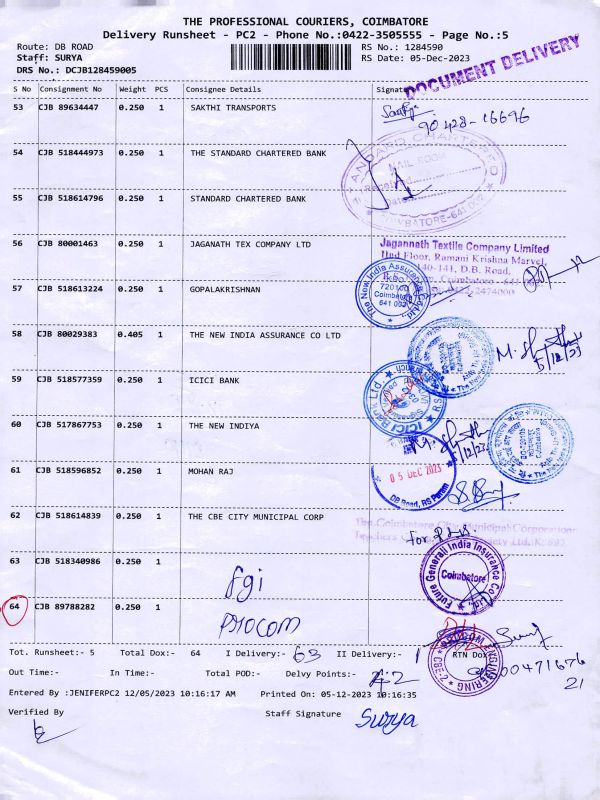 THE PROFESSIONAL COURIERS, COIMBATORE
Delivery Runsheet - PC2 - Phone No.:0422-3505555 - Page No.:5
Route: DB ROAD RS No.: 1284590
Staff: SURYA RS Date: 05-Dec-2023
DRS No.: DCJB128459005
DOCUMENT DELIVERY
S No Consignment No Weight PCS Consignee Details Signat
53 CJB 89634447 0.250 1 SAKTHI TRANSPORTS
90428-16696
54 CJB 518444973 0.250 1 THE STANDARD CHARTERED BANK
STANDARD CHARTERED
MAIL ROOM
Received
Date
COIMBATORE-641 002
55 CJB 518614796 0.250 1 STANDARD CHARTERED BANK
56 CJB 80001463 0.250 1 JAGANATH TEX COMPANY LTD
Jagannath Textile Company Limited
IInd Floor, Ramani Krishna Marvel,
140-141, D.B. Road,
57 CJB 518613224 0.250 1 GOPALAKRISHNAN
The New India Assurance
720100
Coimbatore
641 002
58 CJB 80029383 0.405 1 THE NEW INDIA ASSURANCE CO LTD
5/12/23
59 CJB 518577359 0.250 1 ICICI BANK
ICICI Bank Ltd.
60 CJB 517867753 0.250 1 THE NEW INDIYA
5/12/23
61 CJB 518596852 0.250 1 MOHAN RAJ
05 DEC 2023
DB Road, RS Puram
62 CJB 518614839 0.250 1 THE CBE CITY MUNICIPAL CORP
The Coimbatore City Municipal Corporation
63 CJB 518340986 0.250 1
fgi
Future Generali India Insurance Co. Ltd.
Coimbatore
64 CJB 89788282 0.250 1
procom
Tot. Runsheet:- 5 Total Dox:- 64 I Delivery:- 63 II Delivery:- 1 RTN Dox
Out Time:- In Time:- Total POD:- Delvy Points:- 42
Entered By :JENIFERPC2 12/05/2023 10:16:17 AM Printed On: 05-12-2023 10:16:35
Verified By Staff Signature Surya